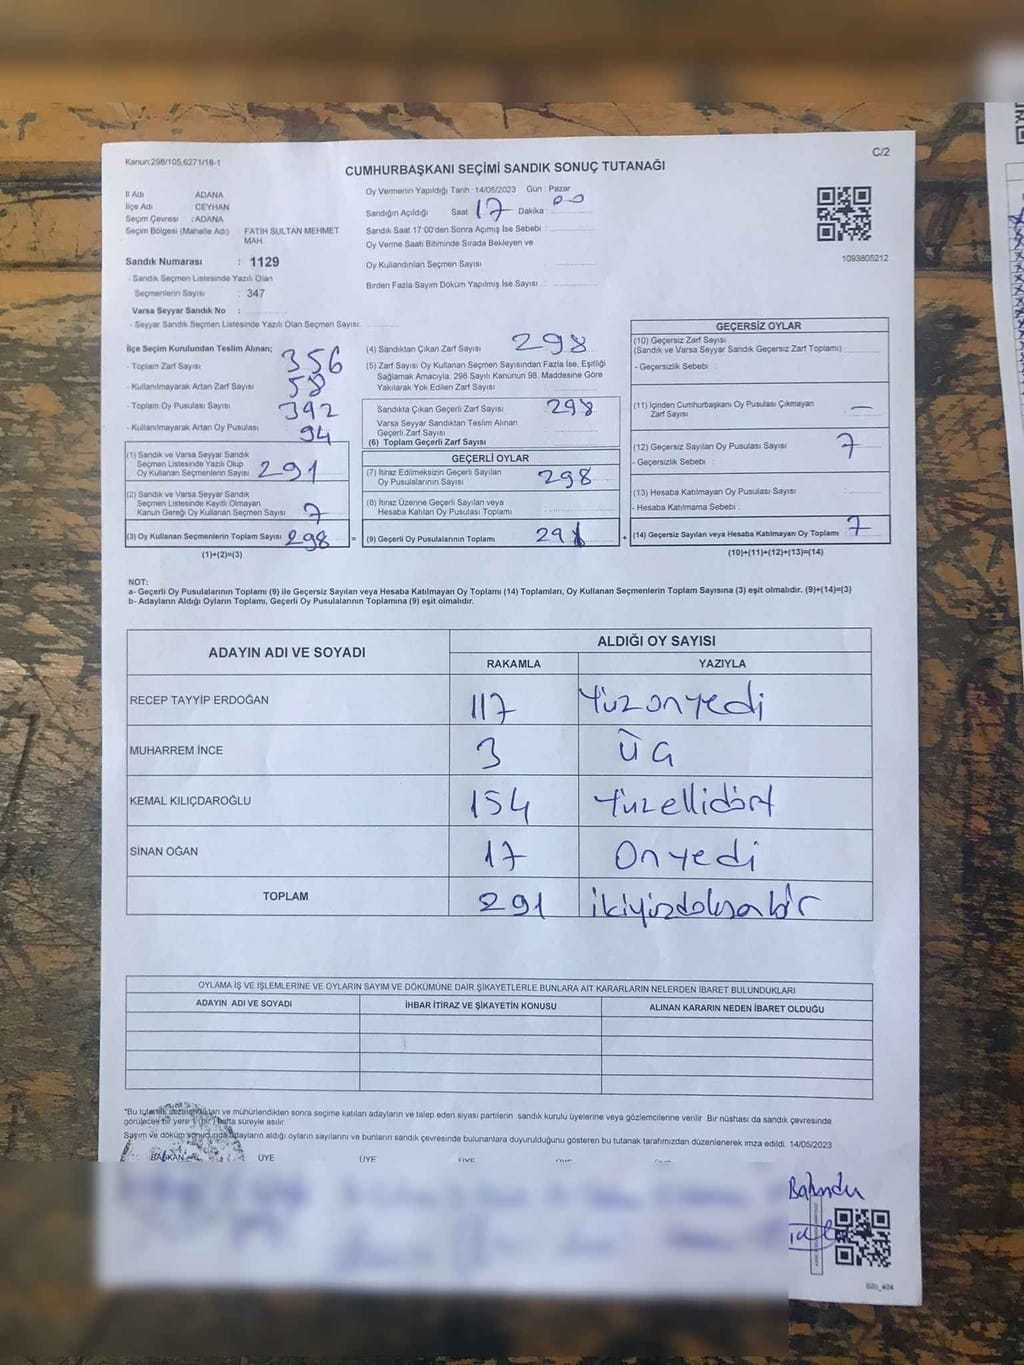 Kanun:298/105,6271/18-1
C/2
CUMHURBAŞKANI SEÇİMİ SANDIK SONUÇ TUTANAĞI
İl Adı ADANA
İlçe Adı : CEYHAN
Seçim Çevresi : ADANA
Seçim Bölgesi (Mahalle Adı) FATİH SULTAN MEHMET MAH.
Sandık Numarası : 1129
- Sandık Seçmen Listesinde Yazılı Olan
Seçmenlerin Sayısı : 347
Varsa Seyyar Sandık No :
- Seyyar Sandık Seçmen Listesinde Yazılı Olan Seçmen Sayısı:
Oy Vermenin Yapıldığı Tarih : 14/05/2023 Gün : Pazar
Sandığın Açıldığı Saat 17 Dakika 00
Sandık Saat 17:00'den Sonra Açımış İse Sebebi :
Oy Verme Saati Bitiminde Sırada Bekleyen ve
Oy Kullandırılan Seçmen Sayısı :
Birden Fazla Sayım Döküm Yapılmış İse Sayısı :
1093805212
İlçe Seçim Kurulundan Teslim Alınan;
- Toplam Zarf Sayısı 356
- Kullanılmayarak Artan Zarf Sayısı 58
- Toplam Oy Pusulası Sayısı 392
- Kullanılmayarak Artan Oy Pusulası 94
(1) Sandık ve Varsa Seyyar Sandık
Seçmen Listesinde Yazılı Olup
Oy Kullanan Seçmenlerin Sayısı 291
(2) Sandık ve Varsa Seyyar Sandık
Seçmen Listesinde Kayıtlı Olmayan
Kanun Gereği Oy Kullanan Seçmen Sayısı 7
(3) Oy Kullanan Seçmenlerin Toplam Sayısı 298 =
(1)+(2)=(3)
(4) Sandıktan Çıkan Zarf Sayısı 298
(5) Zarf Sayısı Oy Kullanan Seçmen Sayısından Fazla İse, Eşitliği
Sağlamak Amacıyla, 298 Sayılı Kanunun 98. Maddesine Göre
Yakılarak Yok Edilen Zarf Sayısı
Sandıkta Çıkan Geçerli Zarf Sayısı 298
Varsa Seyyar Sandıktan Teslim Alınan
Geçerli Zarf Sayısı
(6) Toplam Geçerli Zarf Sayısı
GEÇERLİ OYLAR
(7) İtiraz Edilmeksizin Geçerli Sayılan
Oy Pusulalarının Sayısı 298
(8) İtiraz Üzerine Geçerli Sayılan veya
Hesaba Katılan Oy Pusulası Toplamı
(9) Geçerli Oy Pusulalarının Toplamı +
GEÇERSİZ OYLAR
(10) Geçersiz Zarf Sayısı
(Sandık ve Varsa Seyyar Sandık Geçersiz Zarf Toplamı)
- Geçersizlik Sebebi :
(11) İçinden Cumhurbaşkanı Oy Pusulası Çıkmayan
Zarf Sayısı —
(12) Geçersiz Sayılan Oy Pusulası Sayısı 7
- Geçersizlik Sebebi :
(13) Hesaba Katılmayan Oy Pusulası Sayısı
- Hesaba Katılmama Sebebi
(14) Geçersiz Sayılan veya Hesaba Katılmayan Oy Toplamı 7
(10)+(11)+(12)+(13)=(14)
NOT:
a- Geçerli Oy Pusulalarının Toplamı (9) ile Geçersiz Sayılan veya Hesaba Katılmayan Oy Toplamı (14) Toplamları, Oy Kullanan Seçmenlerin Toplam Sayısına (3) eşit olmalıdır. (9)+(14)=(3)
b- Adayların Aldığı Oyların Toplamı, Geçerli Oy Pusulalarının Toplamına (9) eşit olmalıdır.
ADAYIN ADI VE SOYADI ALDIĞI OY SAYISI
RAKAMLA YAZIYLA
RECEP TAYYİP ERDOĞAN 117 Yüzonyedi
MUHARREM İNCE 3 Üç
KEMAL KILIÇDAROĞLU 154 Yüzellidört
SİNAN OĞAN 17 Onyedi
TOPLAM 291 ikiyüzdoksabir
OYLAMA İŞ VE İŞLEMLERİNE VE OYLARIN SAYIM VE DÖKÜMÜNE DAİR ŞİKAYETLERLE BUNLARA AİT KARARLARIN NELERDEN İBARET BULUNDUKLARI
ADAYIN ADI VE SOYADI İHBAR İTİRAZ VE ŞİKAYETİN KONUSU ALINAN KARARIN NEDEN İBARET OLDUĞU
"Bu tutanak imzalandıktan ve mühürlendikten sonra seçime katılan adayların ve talep eden siyasi partilerin sandık kurulu üyelerine veya gözlemcilerine verilir. Bir nüshası da sandık çevresinde
görülecek bir yere 1 (bir) hafta süreyle asılır.
Sayım ve döküm sonucunda adayların aldığı oyların sayılarını ve bunların sandık çevresinde bulunanlara duyurulduğunu gösteren bu tutanak tarafımızdan düzenlenerek imza edildi. 14/05/2023
BAŞKAN ÜYE ÜYE ÜYE ÜYE